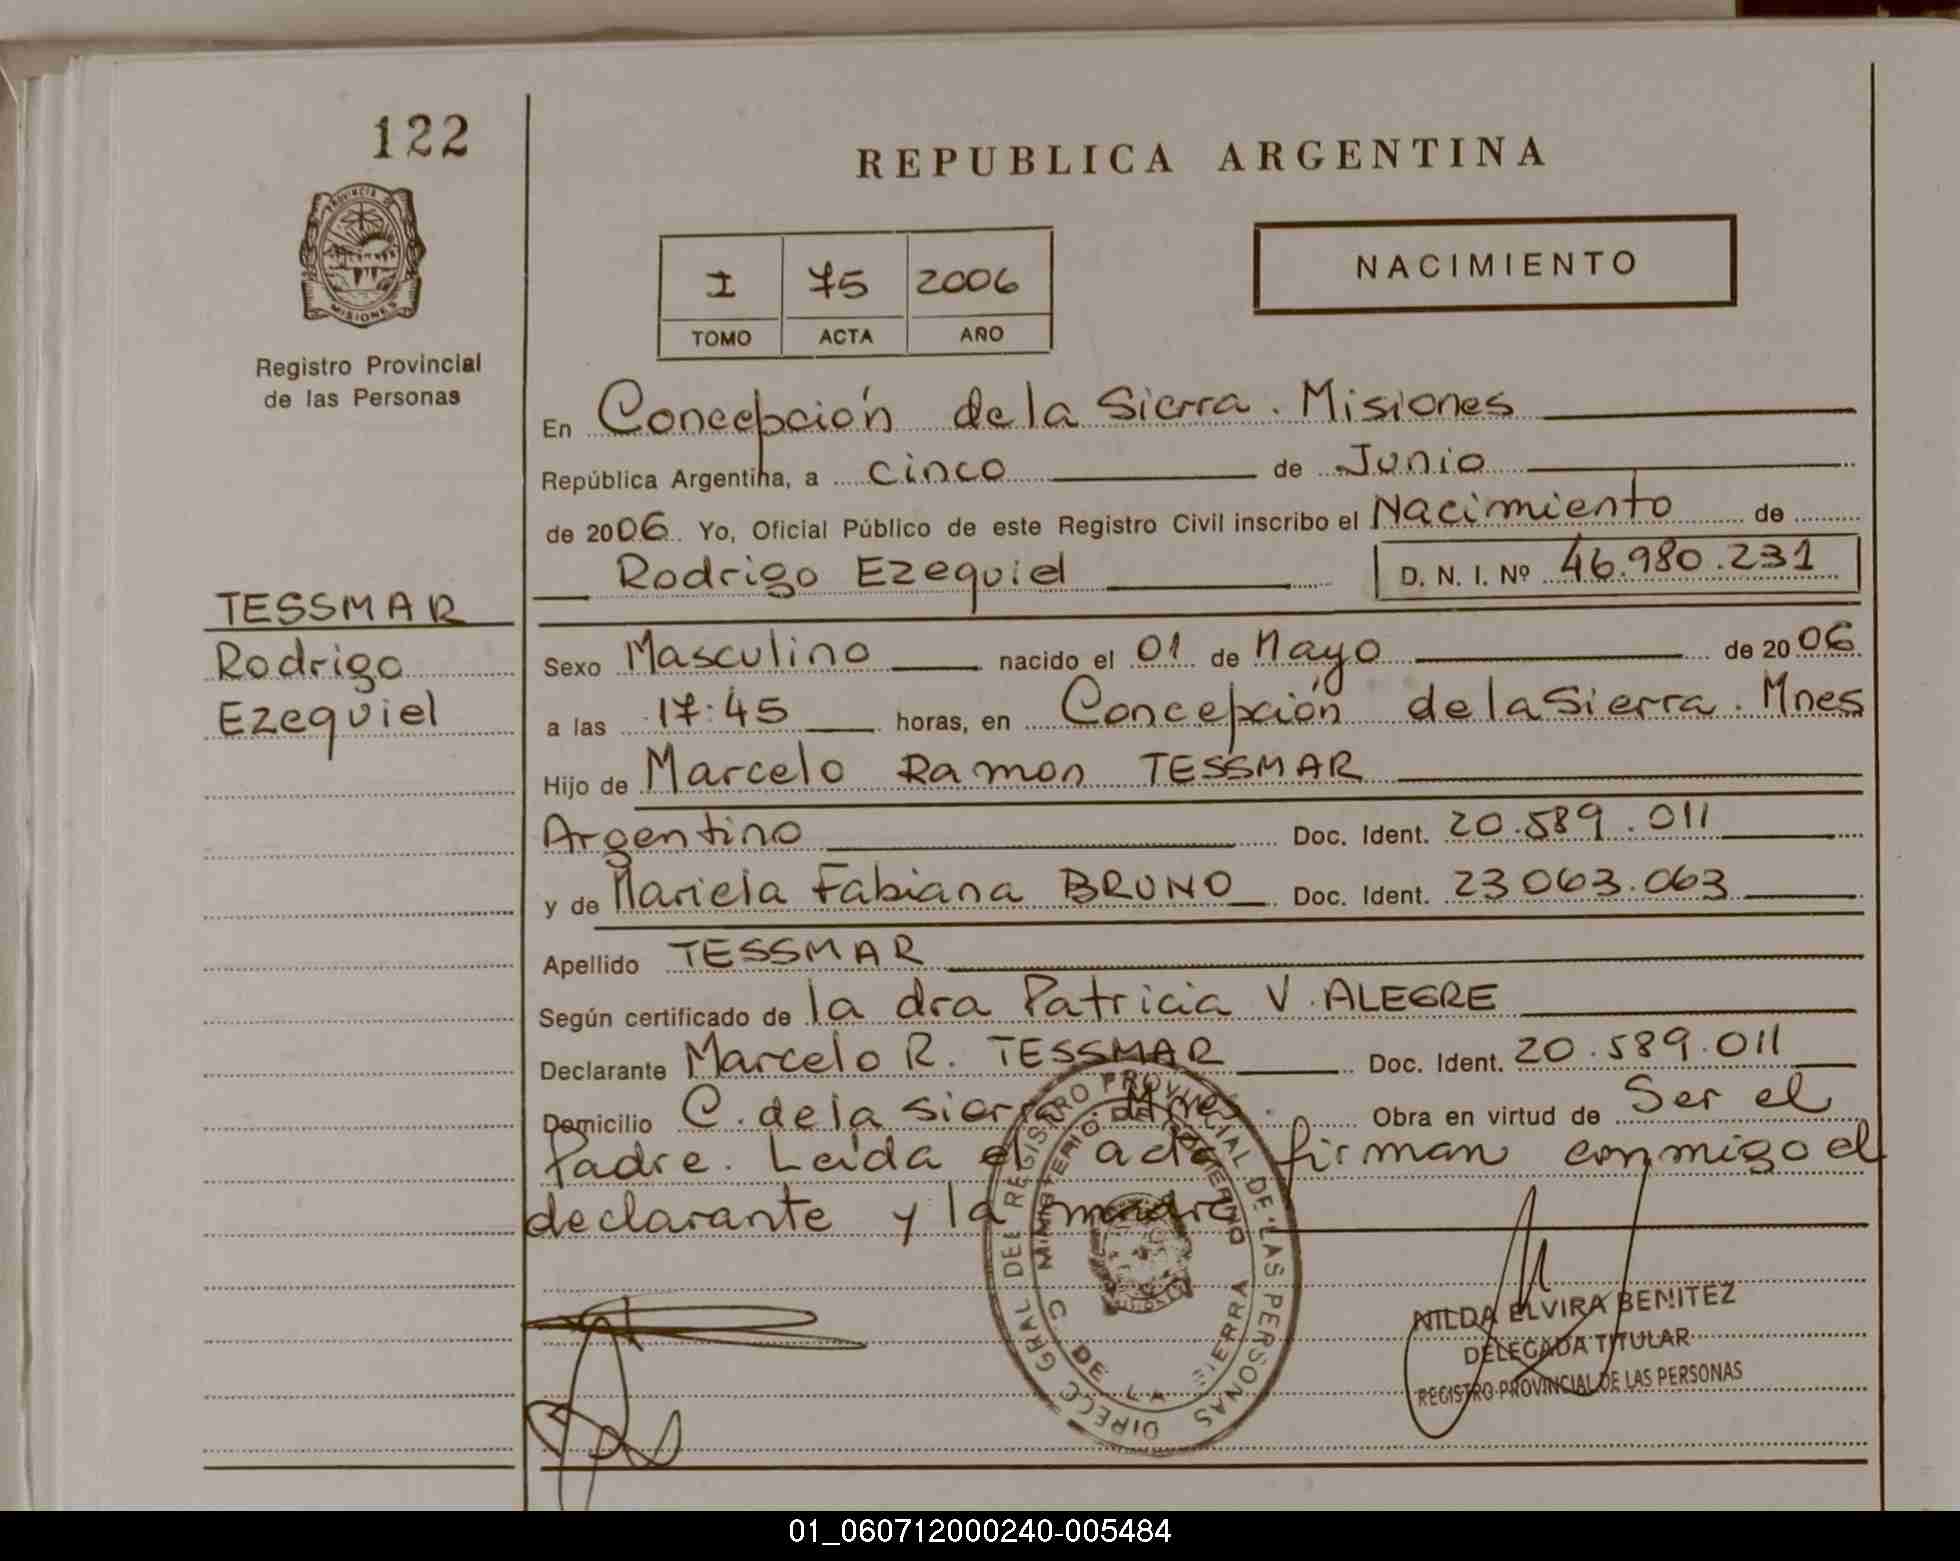 122
REPUBLICA ARGENTINA
PROVINCIA DE
MISIONES
Registro Provincial
de las Personas
I 75 2006
TOMO ACTA AÑO
NACIMIENTO
En Concepción de la Sierra. Misiones
República Argentina, a cinco de Junio
de 2006 Yo, Oficial Público de este Registro Civil inscribo el Nacimiento de
Rodrigo Ezequiel D. N. I. Nº 46.980.231
TESSMAR
Rodrigo
Ezequiel
Sexo Masculino nacido el 01 de Mayo de 2006
a las 17:45 horas, en Concepción de la Sierra. Mnes
Hijo de Marcelo Ramon TESSMAR
Argentino Doc. Ident. 20.589.011
y de Mariela Fabiana BRUNO Doc. Ident. 23063.063
Apellido TESSMAR
Según certificado de la dra Patricia V. ALEGRE
Declarante Marcelo R. TESSMAR Doc. Ident. 20.589.011
Domicilio C. de la Sierra. Mnes. Obra en virtud de Ser el
Padre. Leída el acta firman conmigo el
declarante y la madre
DIRECC GRAL DEL REGISTRO PROVINCIAL DE LAS PERSONAS
MINISTERIO DE GOBIERNO
C. DE LA SIERRA
NILDA ELVIRA BENITEZ
DELEGADA TITULAR
REGISTRO PROVINCIAL DE LAS PERSONAS
01_060712000240-005484